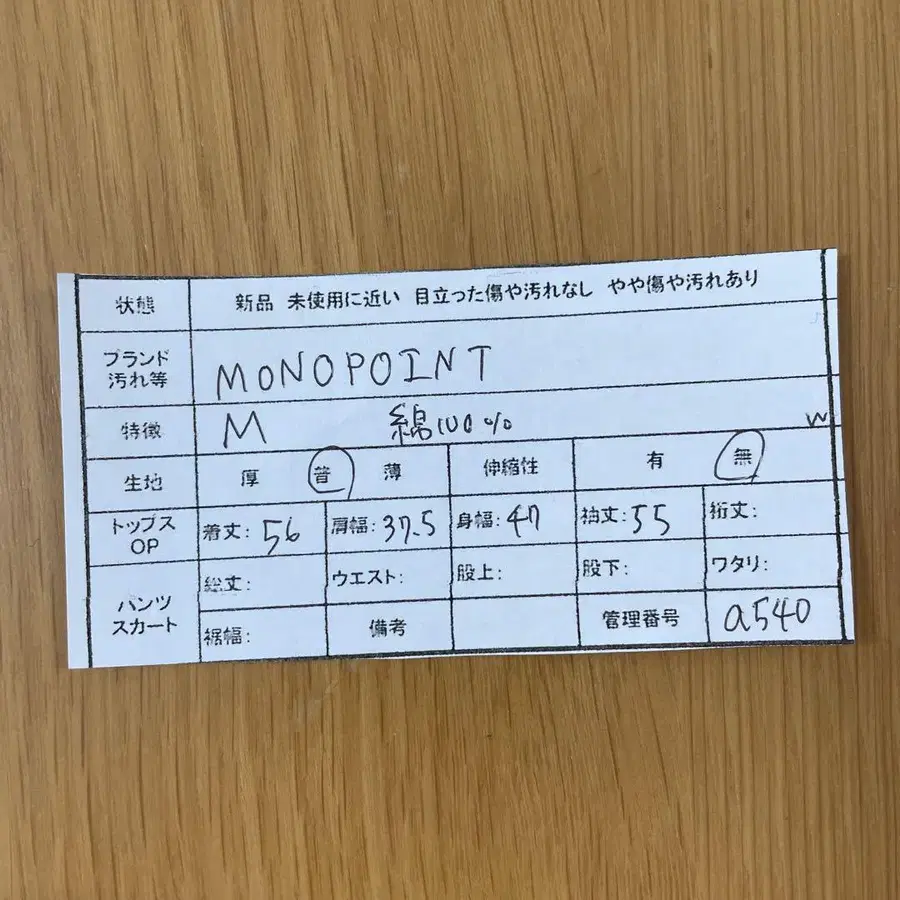 状態 新品 未使用に近い 目立った傷や汚れなし やや傷や汚れあり
ブランド
汚れ等 MONOPOINT
特徴 M 綿100% W
生地 厚 普 薄 伸縮性 有 無
トップス
OP 着丈: 56 肩幅: 37.5 身幅: 47 袖丈: 55 裄丈:
パンツ
スカート 総丈: ウエスト: 股上: 股下: ワタリ:
裾幅: 備考 管理番号 a540